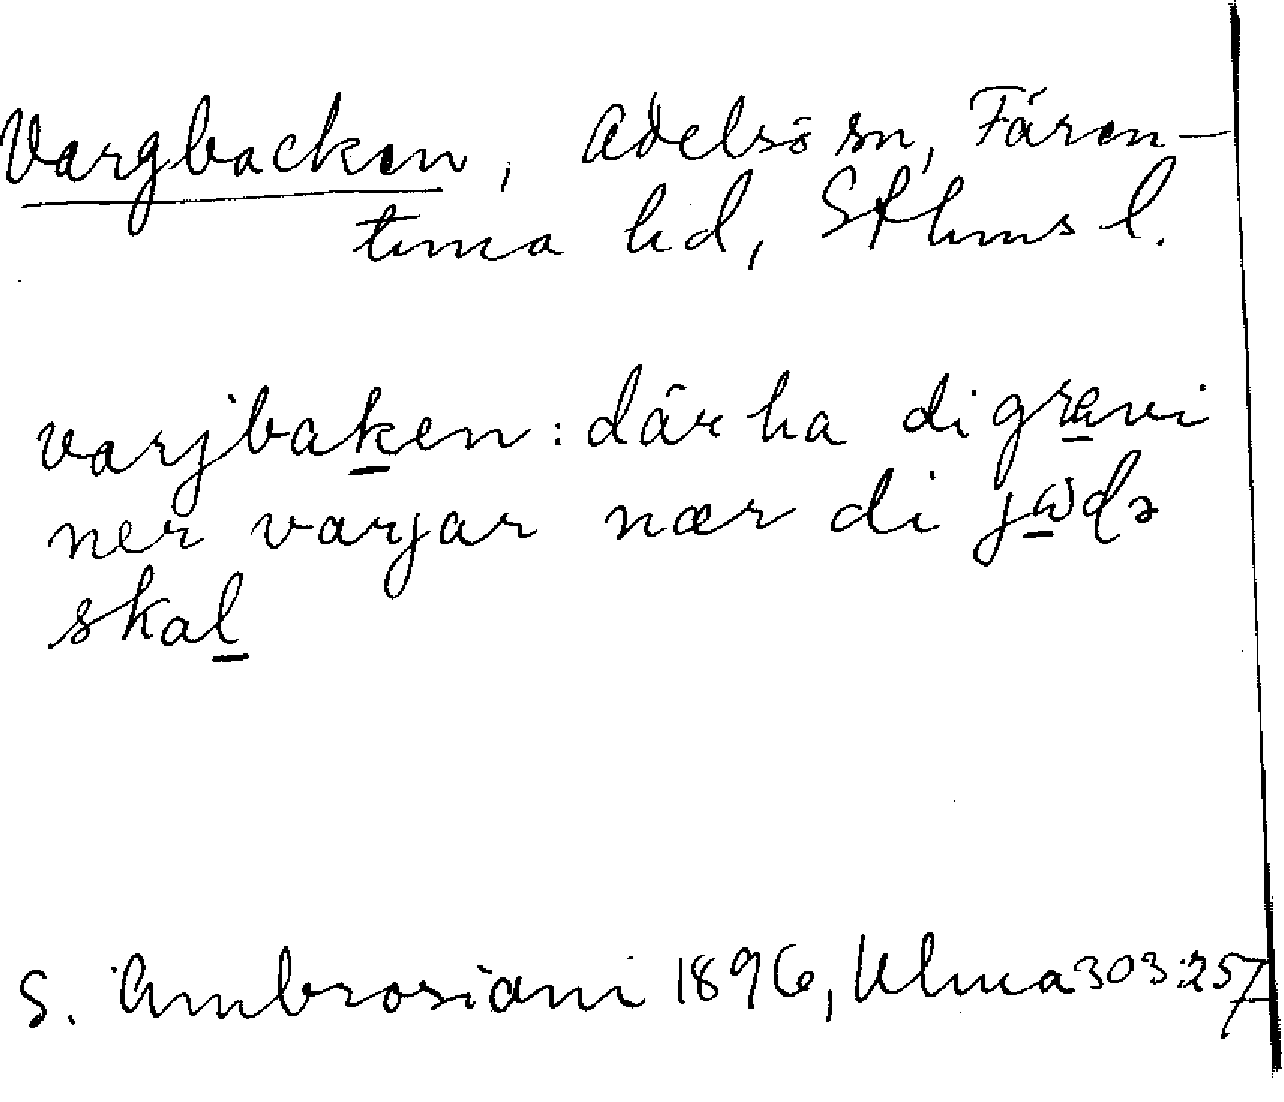 Vargbacken, Adelsö sn, Fären-
tuna hd, Sthms l.
varjbaken: där ha di gravi
ner varjar nær di jωdə
skal
S. Ambrosiani 1896, Ulma 303:257